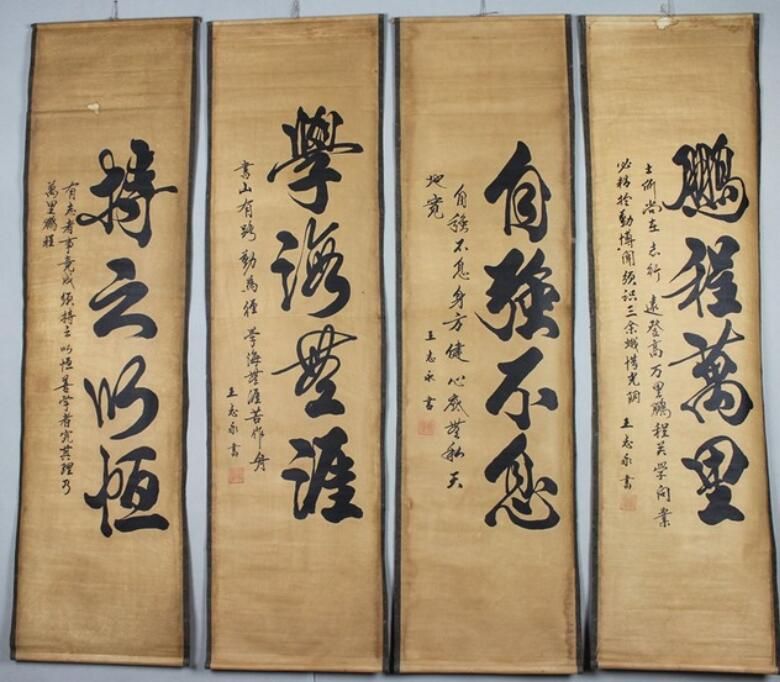 鵬程萬里
士所尚在志行 遠登高万里鵬程关學问業
必精於勤博聞須识三余蛾惜光阴
王志永書
自強不息
自強不息身方健心底無私天
地寬
王志永書
學海無涯
書山有路勤為徑 学海無涯苦作舟
王志永書
持之以恒
有志者事竟成須持之以恒善學者究其理乃
萬里鵬程